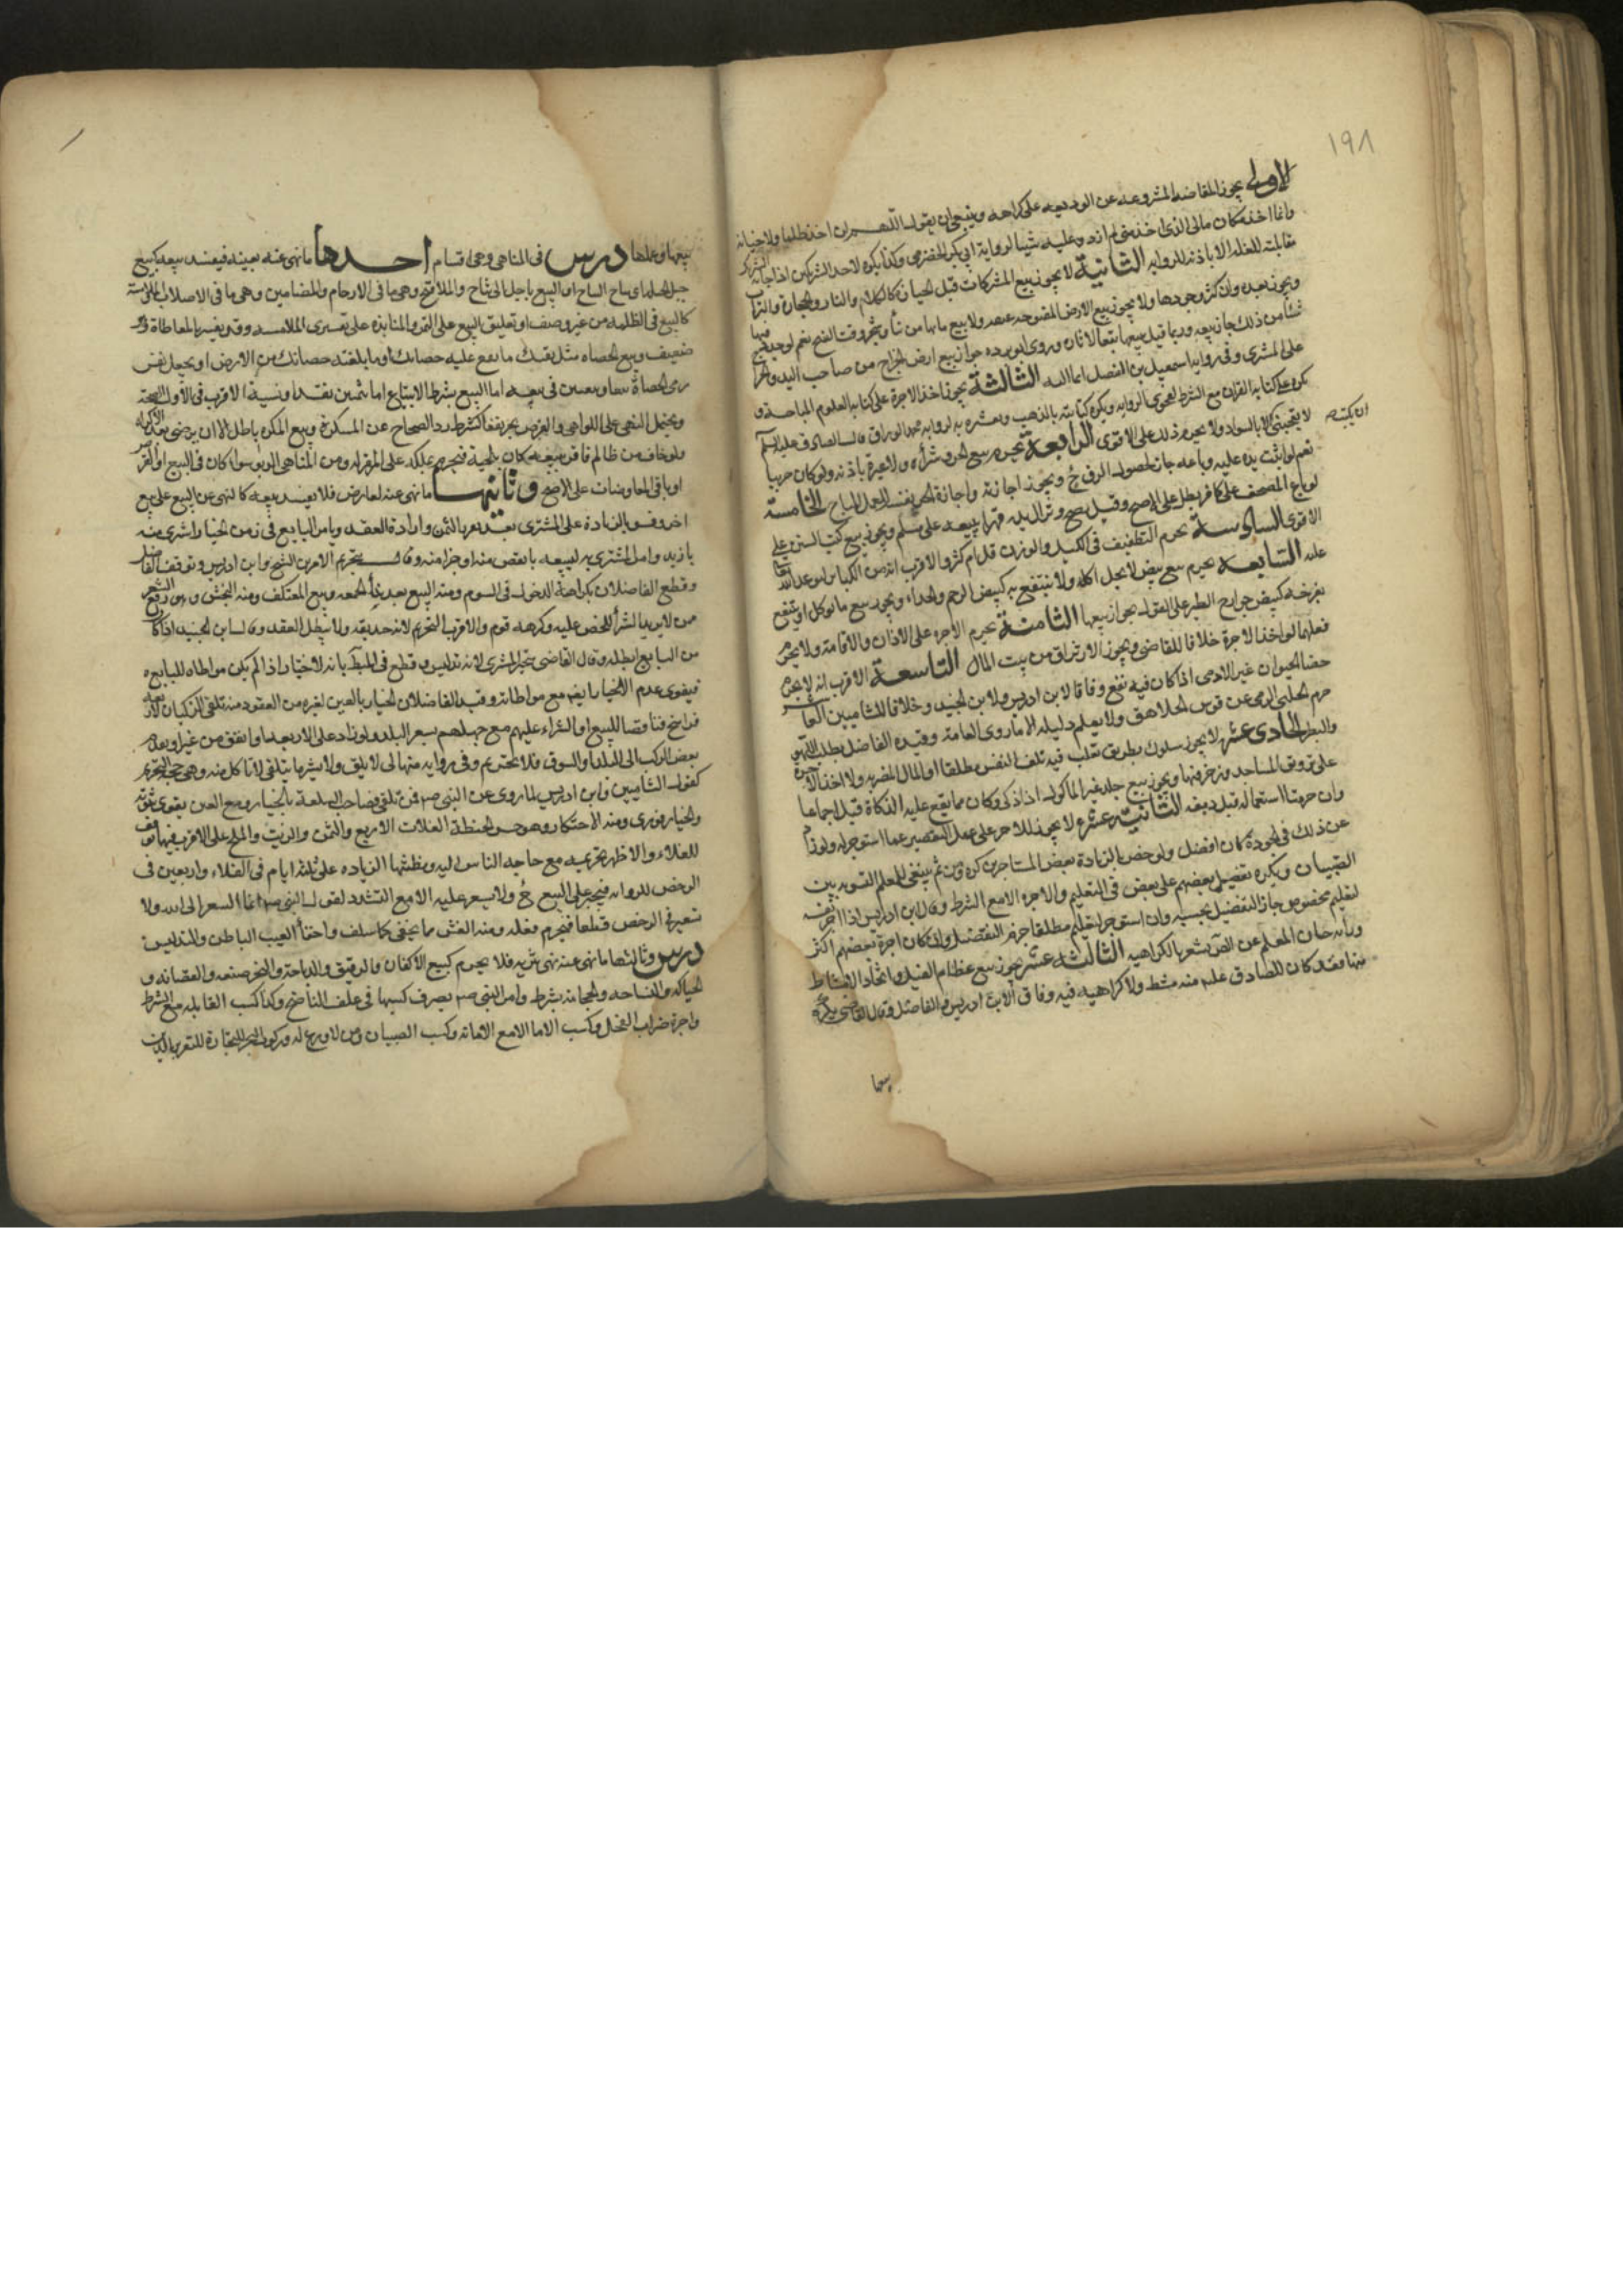 ١٩٨
الاولى يجوز المقاصه المشروعه عن الوديعه على كراهه وينبغى ان يقول اللهم انى لم اخذه ظلما ولا خيانة
وانما اخذته مكان مالى الذى اخذ منى لم ازدد عليه شيئا لرواية ابى بكر الحضرمى وكذا يكره لاحد الشريكين اذا خانه الشريك
مقابلته للعذله الا باذنه للروايه الثانية لا يجوز بيع المشتركات قبل الحيازه كالكلاء والنار والحجارة والتراب
ويجوز بعده وان كثر وجودها ولا يجوز بيع الارض المفتوحه عنوه ولا بيع مابها من بناء وشجر وقت الفتح نعم لو جدد فيها
شيئا من ذلك جاز بيعه وربما قيل ببيعها تبعا لاثاره وروى ابو برده جواز بيع ارض الخراج من صاحب اليد والخراج
على المشترى وفى رواية اسمعيل بن الفضل ايماء اليه الثالثة يجوز اخذ الاجرة على كتابه العلوم المباحه و
يكره على كتابه القران مع الشرط لفحوى الروايه ويكره كتابته بالذهب وتعشيره به لرواية محمد الوراق قال الصادق عليه السلم
لا يعجبنى الا بالسواد ولا يحرم ذلك على الاقوى الرابعة يحرم بيع الحر وشراؤه ولا عبرة باذنه ولو كان حربيا
ان يكتب
نعم لو اثبت يده عليه وباعه جاز لحصول الرق ح ويجوز اجازته واجارة الحر نفسه للعمل المباح الخامسة
لو باع المصحف على كافر بطل على الاصح وقيل يصح وتزال يده قهرا ببيعه على مسلم ويجوز بيع كتب السنن على
الاقوى السادسة يحرم التطفيف فى الكيل والوزن قل ام كثر والاقرب انه من الكبائر لوعد الله
عليه السابعة يحرم بيع بيض لا يحل اكله ولا ينتفع به كبيض الرخم والحداء ويجوز بيع ما يؤكل او ينتفع
بفرخه كبيض جوارح الطير على القول بجواز بيعها الثامنة يحرم الاجره على الاذان والاقامة ولا يحرم
فعلهما لو اخذ الاجرة خلافا للقاضى ويجوز الارتزاق من بيت المال التاسعة الاقرب انه لا يحرم
خصاء الحيوان غير الادمى اذا كان فيه نفع وفاقا لابن ادريس ولابن الجنيد وخلافا للشاميين العاشر
حرم الحلبى الرمى عن قوس الجلاهق ولا يعلم دليله الا ما روى العامة وقيده الفاضل بطلب اللهو
والبطر الحادى عشر لا يجوز سلوك طريق تغلب فيه تلف النفس مطلقا او المال المضر به ولا اخذ الاجرة
على تزويق المساجد وزخرفتها ويجوز بيع جلد غير المأكول اذا ذكى وكان مما يقع عليه الذكاة قبل اجماعا
وان حرمنا استعماله قبل دبغه الثانية عشر لا يجوز للاجير على عمل التقصير عما استوجر له ولو زاد
عن ذلك فى الجودة كان افضل ولو خص بالزيادة بعض المستاجرين كره ومن ثم ينبغى للمعلم التسويه بين
الصبيان ويكره تفضيل بعضهم على بعض فى التعليم والاجره الا مع الشرط وقال ابن ادريس اذا اجر نفسه
لتعليم مخصوص جاز التفضيل بحسبه وان استوجر لتعليم مطلقا حرم التفضيل وان كان اجرة بعضهم اكثر
ورواية حسان المعلم عن الص تشعر بالكراهيه الثالثه عشر يجوز بيع عظام الفيل واتخاذ الامشاط
منها فقد كان للصادق عليه منه مشط ولا كراهيه فيه وفاقا لابن ادريس والفاضل وقال القاضى يكره
بيعها
بيعها وعملها درس فى المناهى وهى اقسام احدها ما نهى عنه بعينه فيفسد بيعه كبيع
حبل الحبله اى نتاج النتاج او البيع باجل الى نتاج والملاقيح وهى ما فى الارحام والمضامين وهى ما فى الاصلاب والملامسة
كالبيع فى الظلمه من غير وصف او تعليق البيع على اللمس والمنابذه على تفسيرى الملامسه وقد يفسر بالمعاطاة وهو
ضعيف وبيع الحصاه مثل بعتك ما تقع عليه حصاتك او ما بلغته حصاتك من الارض او يجعل نفس
رمى الحصاة بيعا وبيعين فى بيعه اما البيع بشرط الابتياع او بثمنين نقدا ونسية والاقرب فى الاول الصحه
ويحتمل النهى على اللواحق والقرض بجر نفعا كشرط رد الصحاح عن المكسرة وبيع المكره باطل الا ان يرضى بعد الاكراه
ولو خاف من ظالم فاقر ببيعه كان تلجية فيحرم تملكه على المقر له ومن المناهى الربا سواء كان فى البيع او القرض
او باقى المعاوضات على الاصح وثانيها ما نهى عنه لعارض فلا يفسد بيعه كالنهى عن البيع على بيع
اخر وهو الزيادة على المشترى بعد تقرير الثمن وارادة العقد ويامر البايع فى زمن الخيار اشترى منه
بازيد وامر المشترى به ليبيعه بانقص منه او خيرا منه وقال بتحريم الامرين الشيخ وابن ادريس وتوقف الفاضل
وقطع الفاضلان بكراهة الدخول فى السوم ومنه البيع بعد نداء الجمعه وبيع المعتكف ومنه النجش وهو رفع السعر
من لا يريد الشراء للحض عليه وكرهه قوم والاقرب التحريم لانه خديعه ولا يبطل العقد وقال ابن الجنيد اذا كان
من البايع ابطله وقال القاضى يتخير المشترى لانه تدليس وقطع فى المبسوط بانه لا خيار اذا لم يكن مواطاه للبايع
فيقوى عدم الخيار ايضا مع مواطاته وقيد الفاضلان الخيار بالغبن لغيره من العقود ومنه تلقى الركبان لاربعة
فراسخ فناقصا للبيع او الشراء عليهم مع جهلهم بسعر البلد ولو زاد على الاربعه او اتفق من غير قصد او تقدم
بعض الركب الى البلد او السوق فلا تحريم وفى رواية منهال لا تلق ولا تشر ما يتلقى لا تاكل منه وهى حجة التحريم
كقول الشاميين وابن ادريس لما روى عن النبى ص من تلقى فصاحب السلعة بالخيار ومع الغبن يقوى ثبوته
والخيار فورى ومنه الاحتكار وهو حبس الحنطة الغلات الاربع والسمن والزيت والملح على الاقرب فيهما توقف
للغلاء والاظهر تحريمه مع حاجه الناس اليه ومظنتها الزياده على ثلثه ايام فى الغلاء واربعين فى
الرخص للروايه فيجبر على البيع ح ولا يسعر عليه الا مع التشدد لقول النبى ص انما السعر الى الله ولا
تسعير فى الرخص قطعا فيحرم فعله ومنه الغش مما يخفى كما سلف واخفاء العيب الباطن والتدليس
درس وثالثها ما نهى عنه نهى تنزيه فلا يحرم كبيع الاكفان والرقيق والذباحة والنحر صنعه والقصابه و
الحياكه والنساجه والحجامة بشرط وامر النبى ص بصرف كسبها فى علف الناضح وكذا كسب القابله مع الشرط
واجرة ضراب الفحل وكسب الاماء الا مع الامانة وكسب الصبيان ومن لا ورع له وركوب البحر للتجارة للتغرير بالدين